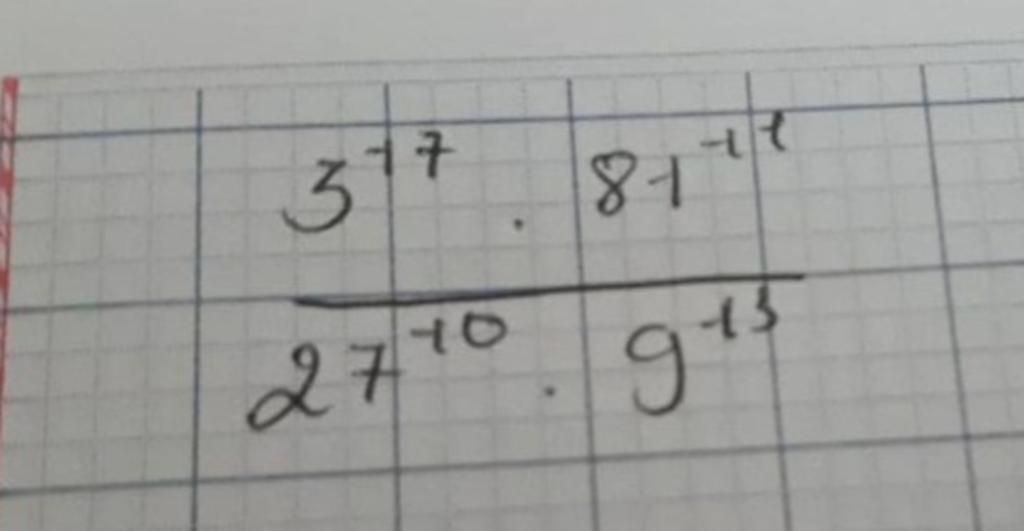 3¹⁷ . 81¹¹
27¹⁰ . 9¹⁵